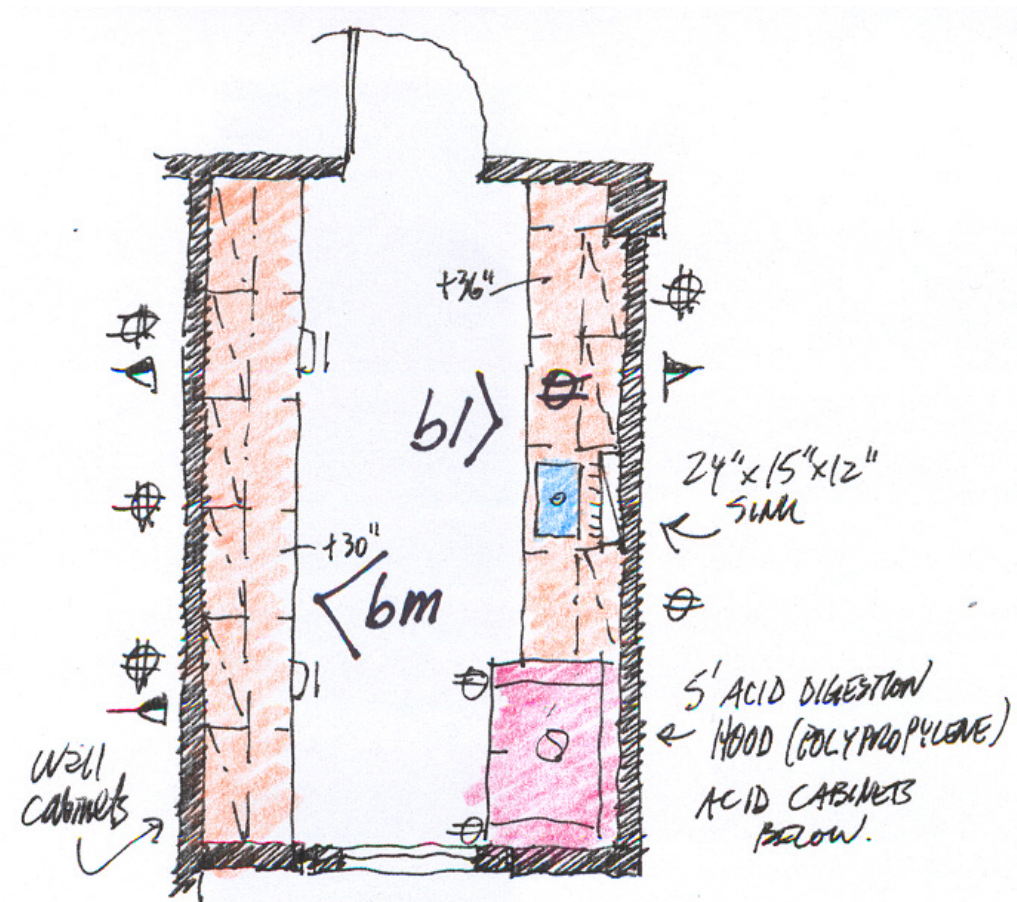 +36"
bl
24"x15"x12"
SINK
+30"
bm
5' ACID DIGESTION
HOOD (POLYPROPYLENE)
ACID CABINETS
BELOW.
WALL
CABINETS